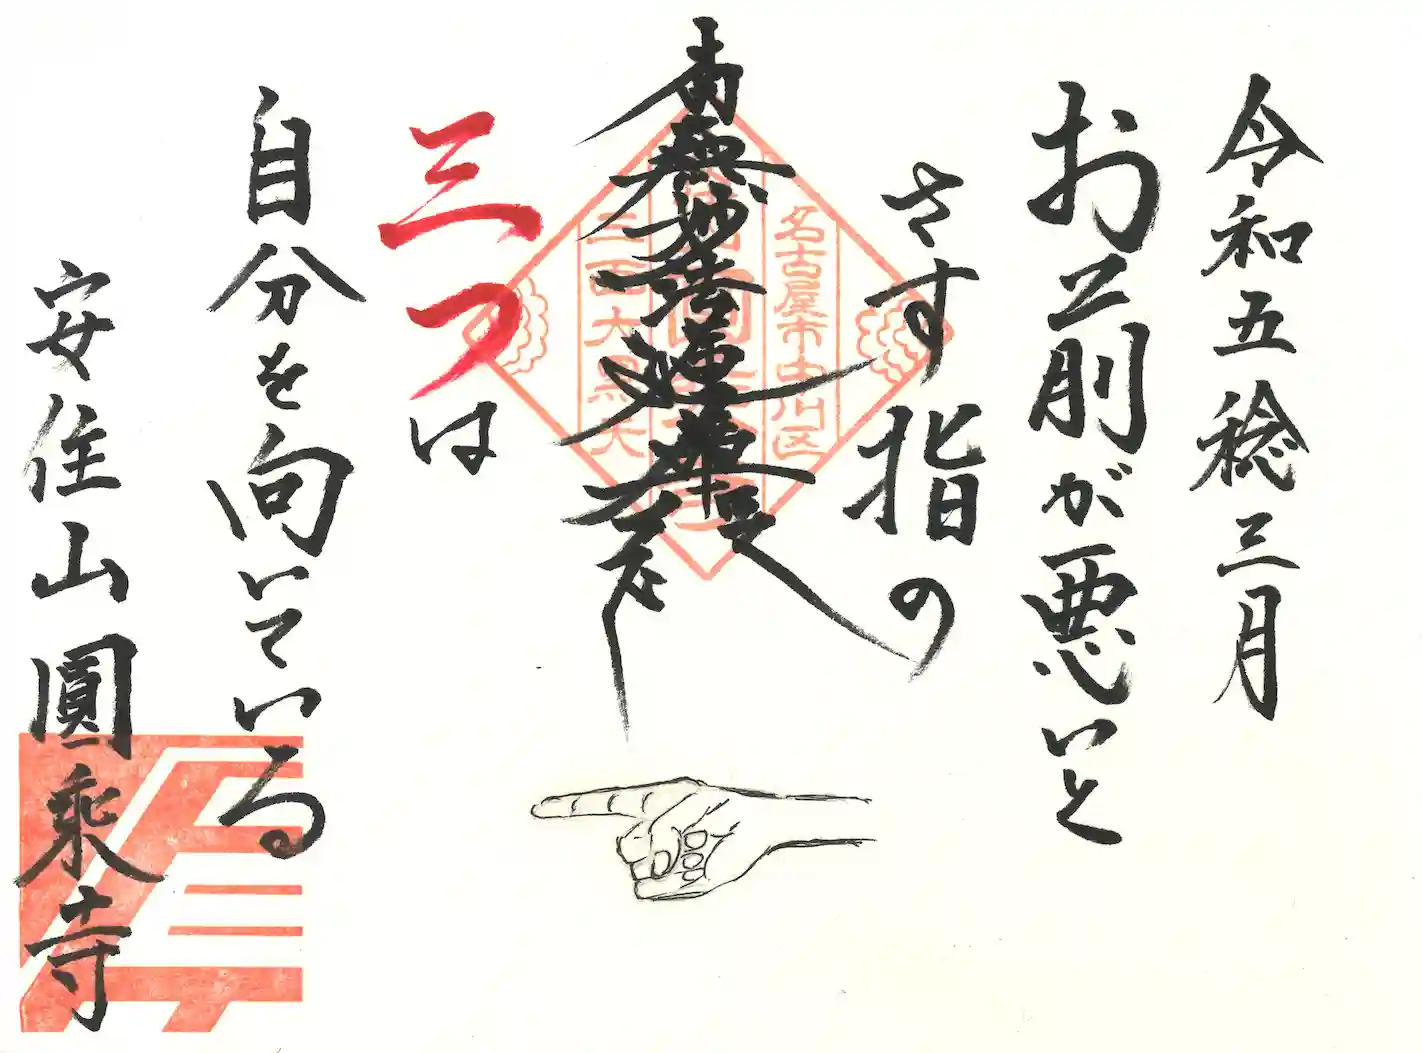 令和五稔三月
お前が悪いと
さす指の
南無妙法蓮華経
名古屋市中川区
三面大黒天
三つは
自分を向いている
安住山圓乘寺